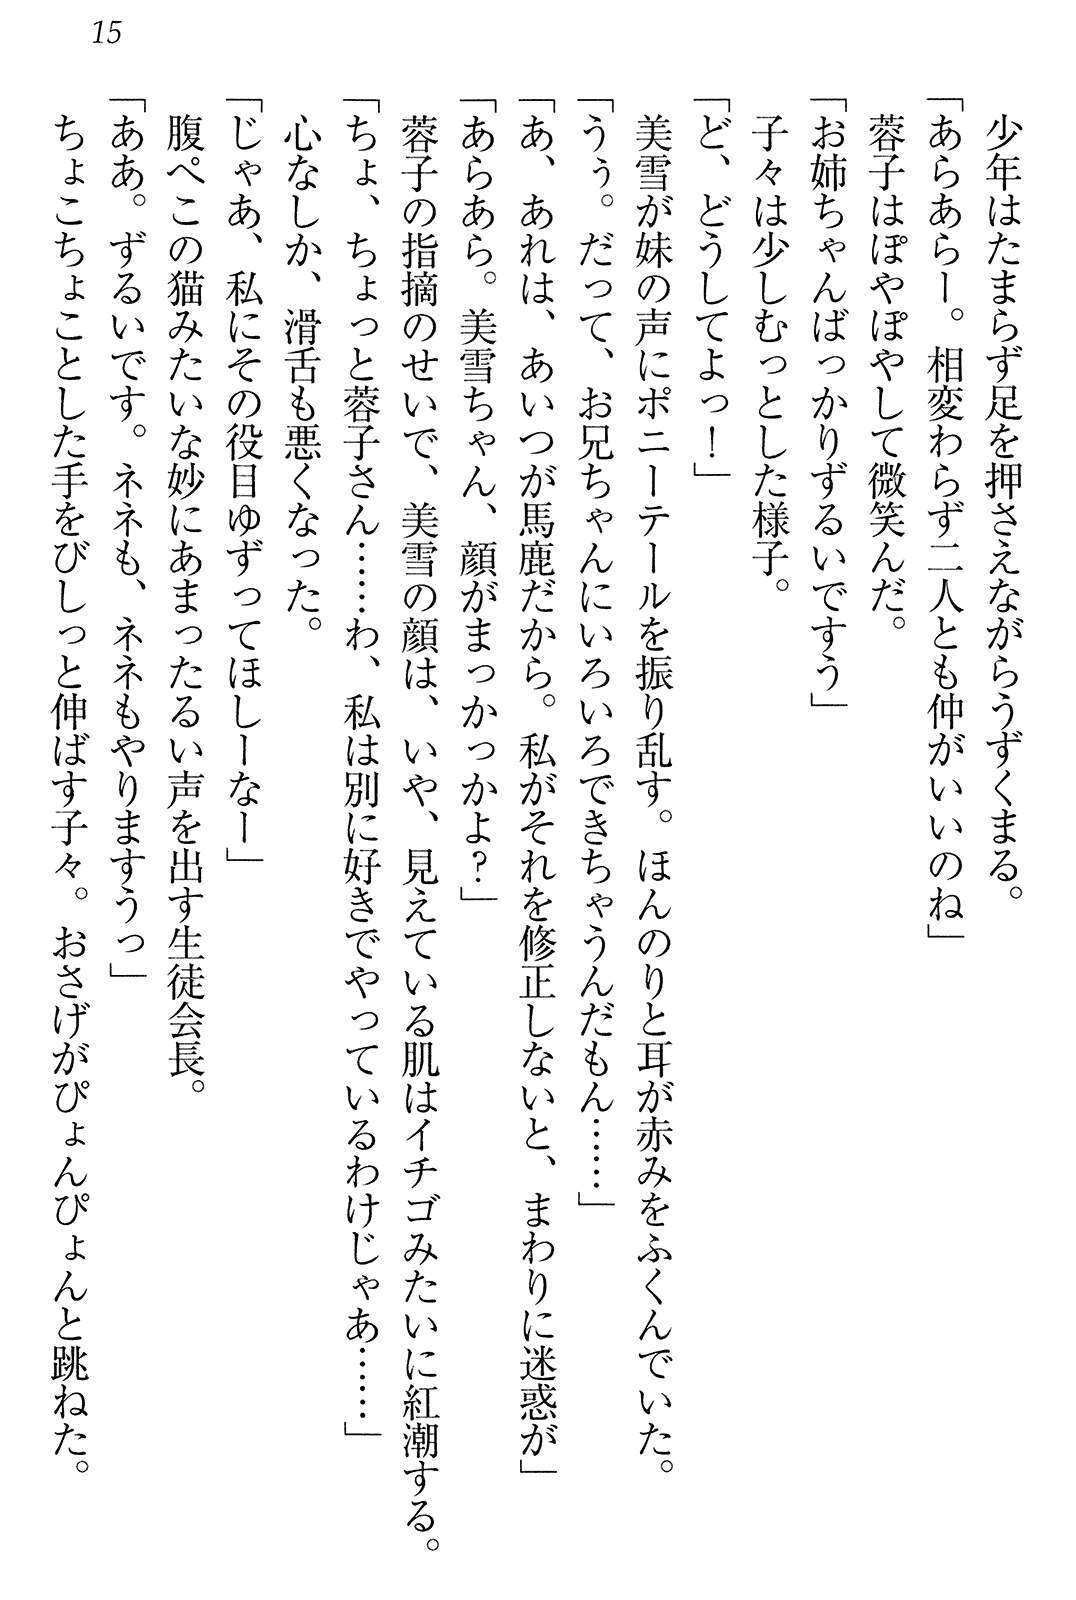 15
少年はたまらず足を押さえながらうずくまる。
「あらあらー。相変わらず二人とも仲がいいのね」
蓉子はぽやぽやして微笑んだ。
「お姉ちゃんばっかりずるいですう」
子々は少しむっとした様子。
「ど、どうしてよっ！」
美雪が妹の声にポニーテールを振り乱す。ほんのりと耳が赤みをふくんでいた。
「うぅ。だって、お兄ちゃんにいろいろできちゃうんだもん……」
「あ、あれは、あいつが馬鹿だから。私がそれを修正しないと、まわりに迷惑が」
「あらあら。美雪ちゃん、顔がまっかっかよ？」
蓉子の指摘のせいで、美雪の顔は、いや、見えている肌はイチゴみたいに紅潮する。
「ちょ、ちょっと蓉子さん……わ、私は別に好きでやっているわけじゃあ……」
心なしか、滑舌も悪くなった。
「じゃあ、私にその役目ゆずってほしーなー」
腹ぺこの猫みたいな妙にあまったるい声を出す生徒会長。
「ああ。ずるいです。ネネも、ネネもやりますうっ」
ちょこちょことした手をびしっと伸ばす子々。おさげがぴょんぴょんと跳ねた。